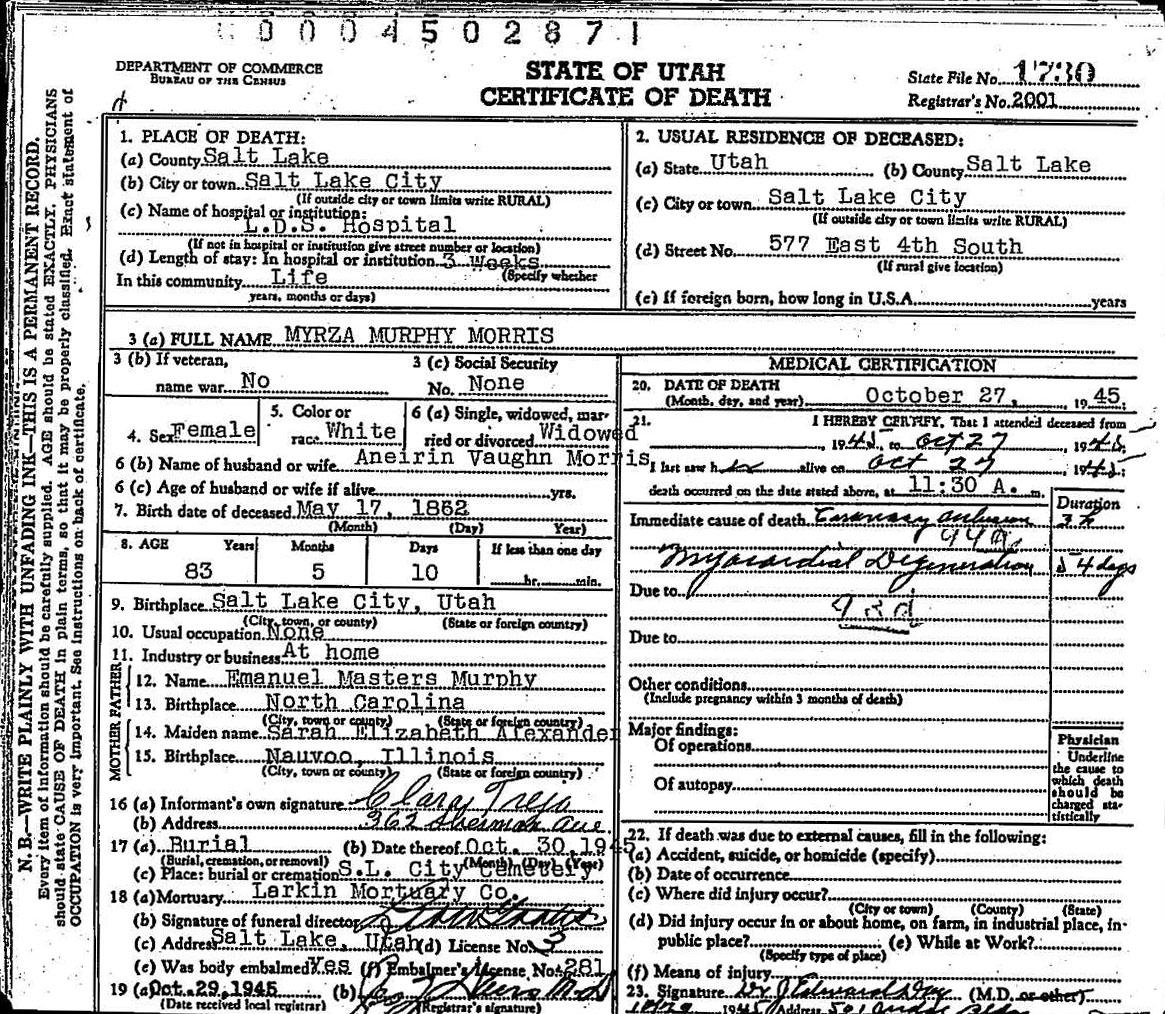 0004502871
DEPARTMENT OF COMMERCE
BUREAU OF THE CENSUS
STATE OF UTAH
CERTIFICATE OF DEATH
State File No. 1730
Registrar's No. 2001
N. B.—WRITE PLAINLY WITH UNFADING INK—THIS IS A PERMANENT RECORD.
Every item of information should be carefully supplied. AGE should be stated EXACTLY. PHYSICIANS
should state CAUSE OF DEATH in plain terms, so that it may be properly classified. Exact statement of
OCCUPATION is very important. See instructions on back of certificate.
1. PLACE OF DEATH:
(a) County Salt Lake
(b) City or town Salt Lake City
(If outside city or town limits write RURAL)
(c) Name of hospital or institution:
L.D.S. Hospital
(If not in hospital or institution give street number or location)
(d) Length of stay: In hospital or institution 3 Weeks
(Specify whether
In this community Life
years, months or days)
2. USUAL RESIDENCE OF DECEASED:
(a) State Utah (b) County Salt Lake
(c) City or town Salt Lake City
(If outside city or town limits write RURAL)
(d) Street No. 577 East 4th South
(If rural give location)
(e) If foreign born, how long in U.S.A. years
3 (a) FULL NAME MYRZA MURPHY MORRIS
3 (b) If veteran,
name war No
3 (c) Social Security
No. None
4. Sex Female
5. Color or
race White
6 (a) Single, widowed, mar-
ried or divorced Widowed
6 (b) Name of husband or wife Aneirin Vaughn Morris
6 (c) Age of husband or wife if alive yrs.
7. Birth date of deceased May 17, 1862
(Month) (Day) (Year)
8. AGE Years Months Days If less than one day
83 5 10 hr. min.
9. Birthplace Salt Lake City, Utah
(City, town, or county) (State or foreign country)
10. Usual occupation None
11. Industry or business At home
FATHER
12. Name Emanuel Masters Murphy
13. Birthplace North Carolina
(City, town or county) (State or foreign country)
MOTHER
14. Maiden name Sarah Elizabeth Alexander
15. Birthplace Nauvoo, Illinois
(City, town or county) (State or foreign country)
16 (a) Informant's own signature Clara Trejo
(b) Address 362 Sherman Ave.
17 (a) Burial (b) Date thereof Oct. 30, 1945
(Burial, cremation, or removal) (Month) (Day) (Year)
(c) Place: burial or cremation S.L. City Cemetery
18 (a) Mortuary Larkin Mortuary Co.
(b) Signature of funeral director
(c) Address Salt Lake, Utah (d) License No. 3
(e) Was body embalmed Yes (f) Embalmer's License No. 281
19 (a) Oct. 29, 1945 (b) M.D.
(Date received local registrar) (Registrar's signature)
MEDICAL CERTIFICATION
20. DATE OF DEATH
(Month, day, and year) October 27, 1945.
21. I HEREBY CERTIFY, That I attended deceased from
, 1945 to Oct 27 1945
I last saw her alive on Oct 27 1945;
death occurred on the date stated above, at 11:30 A. m.
Duration
Immediate cause of death Coronary occlusion 3 h
94a
Myocardial Degeneration 54 days
Due to
93d
Due to
Other conditions
(Include pregnancy within 3 months of death)
Major findings:
Of operations
Of autopsy
Physician
Underline
the cause to
which death
should be
charged sta-
tistically
22. If death was due to external causes, fill in the following:
(a) Accident, suicide, or homicide (specify)
(b) Date of occurrence
(c) Where did injury occur?
(City or town) (County) (State)
(d) Did injury occur in or about home, on farm, in industrial place, in-
public place? (e) While at Work?
(Specify type of place)
(f) Means of injury
23. Signature Dr J Edward Day (M.D. or other)
1945 Address 501